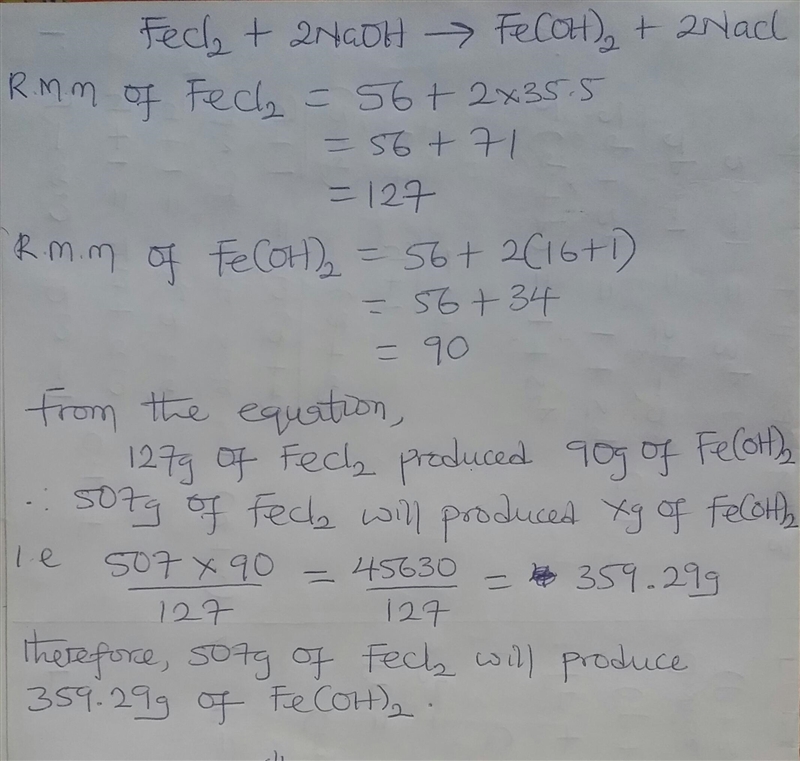 FeCl₂ + 2NaOH → Fe(OH)₂ + 2NaCl
R.M.M of FeCl₂ = 56 + 2×35.5
= 56 + 71
= 127
R.M.M of Fe(OH)₂ = 56 + 2(16+1)
= 56 + 34
= 90
From the equation,
127g of FeCl₂ produced 90g of Fe(OH)₂
∴ 507g of FeCl₂ will produced xg of Fe(OH)₂
i.e 507 × 90 / 127 = 45630 / 127 = 359.29g
Therefore, 507g of FeCl₂ will produce
359.29g of Fe(OH)₂.